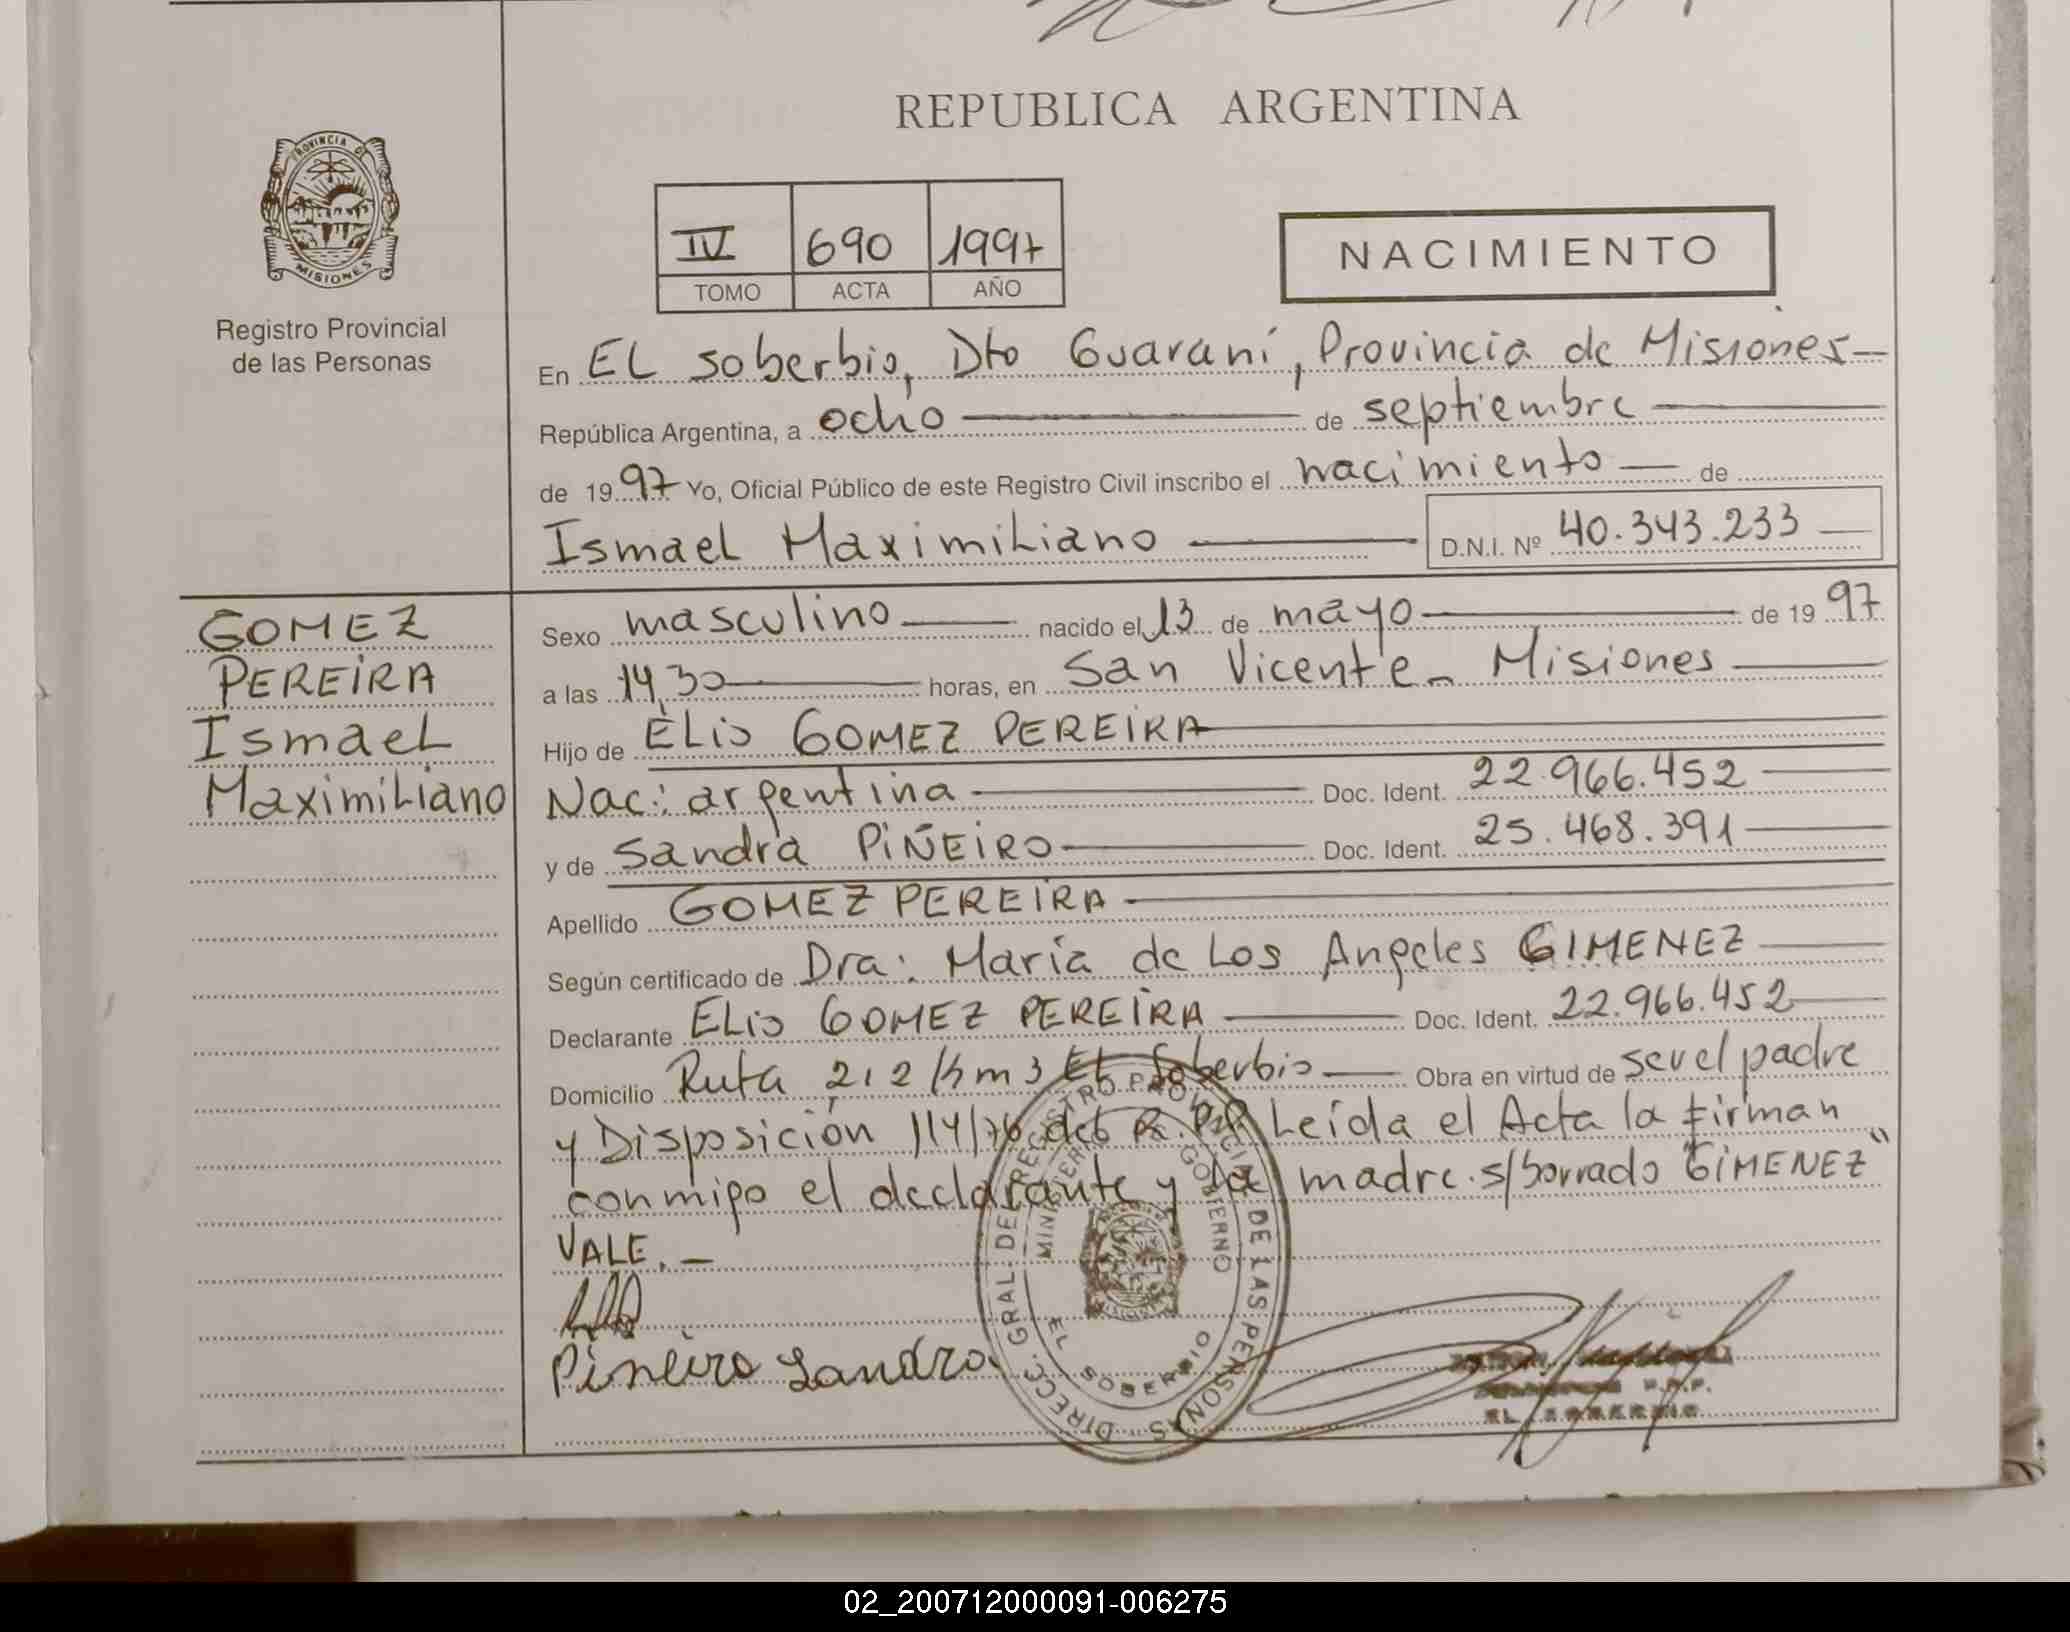 REPUBLICA ARGENTINA
PROVINCIA DE
MISIONES
Registro Provincial
de las Personas
IV 690 1997
TOMO ACTA AÑO
NACIMIENTO
En EL Soberbio, Dto Guaraní, Provincia de Misiones
República Argentina, a ocho de septiembre
de 1997 Yo, Oficial Público de este Registro Civil inscribo el nacimiento de
Ismael Maximiliano D.N.I. Nº 40.343.233
GOMEZ
PEREIRA
Ismael
Maximiliano
Sexo masculino nacido el 13 de mayo de 1997
a las 14,30 horas, en San Vicente - Misiones
Hijo de ELio GOMEZ PEREIRA
Nac: argentina Doc. Ident. 22.966.452
y de Sandra PIÑEIRO Doc. Ident. 25.468.391
Apellido GOMEZ PEREIRA
Según certificado de Dra: María de Los Angeles GIMENEZ
Declarante ELio GOMEZ PEREIRA Doc. Ident. 22.966.452
Domicilio Ruta 212 Km 3 EL Soberbio Obra en virtud de ser el padre
y Disposición 114/76 del R.P.P. Leída el Acta la firman
conmigo el declarante y la madre. s/borrado "GIMENEZ"
VALE. -
Piñeiro Sandra
DIRECC. GRAL. DE REGISTRO PROVINCIAL DE LAS PERSONAS
MINISTERIO GOBIERNO
EL SOBERBIO
MISIONES
R.P.P.
EL SOBERBIO
02_200712000091-006275